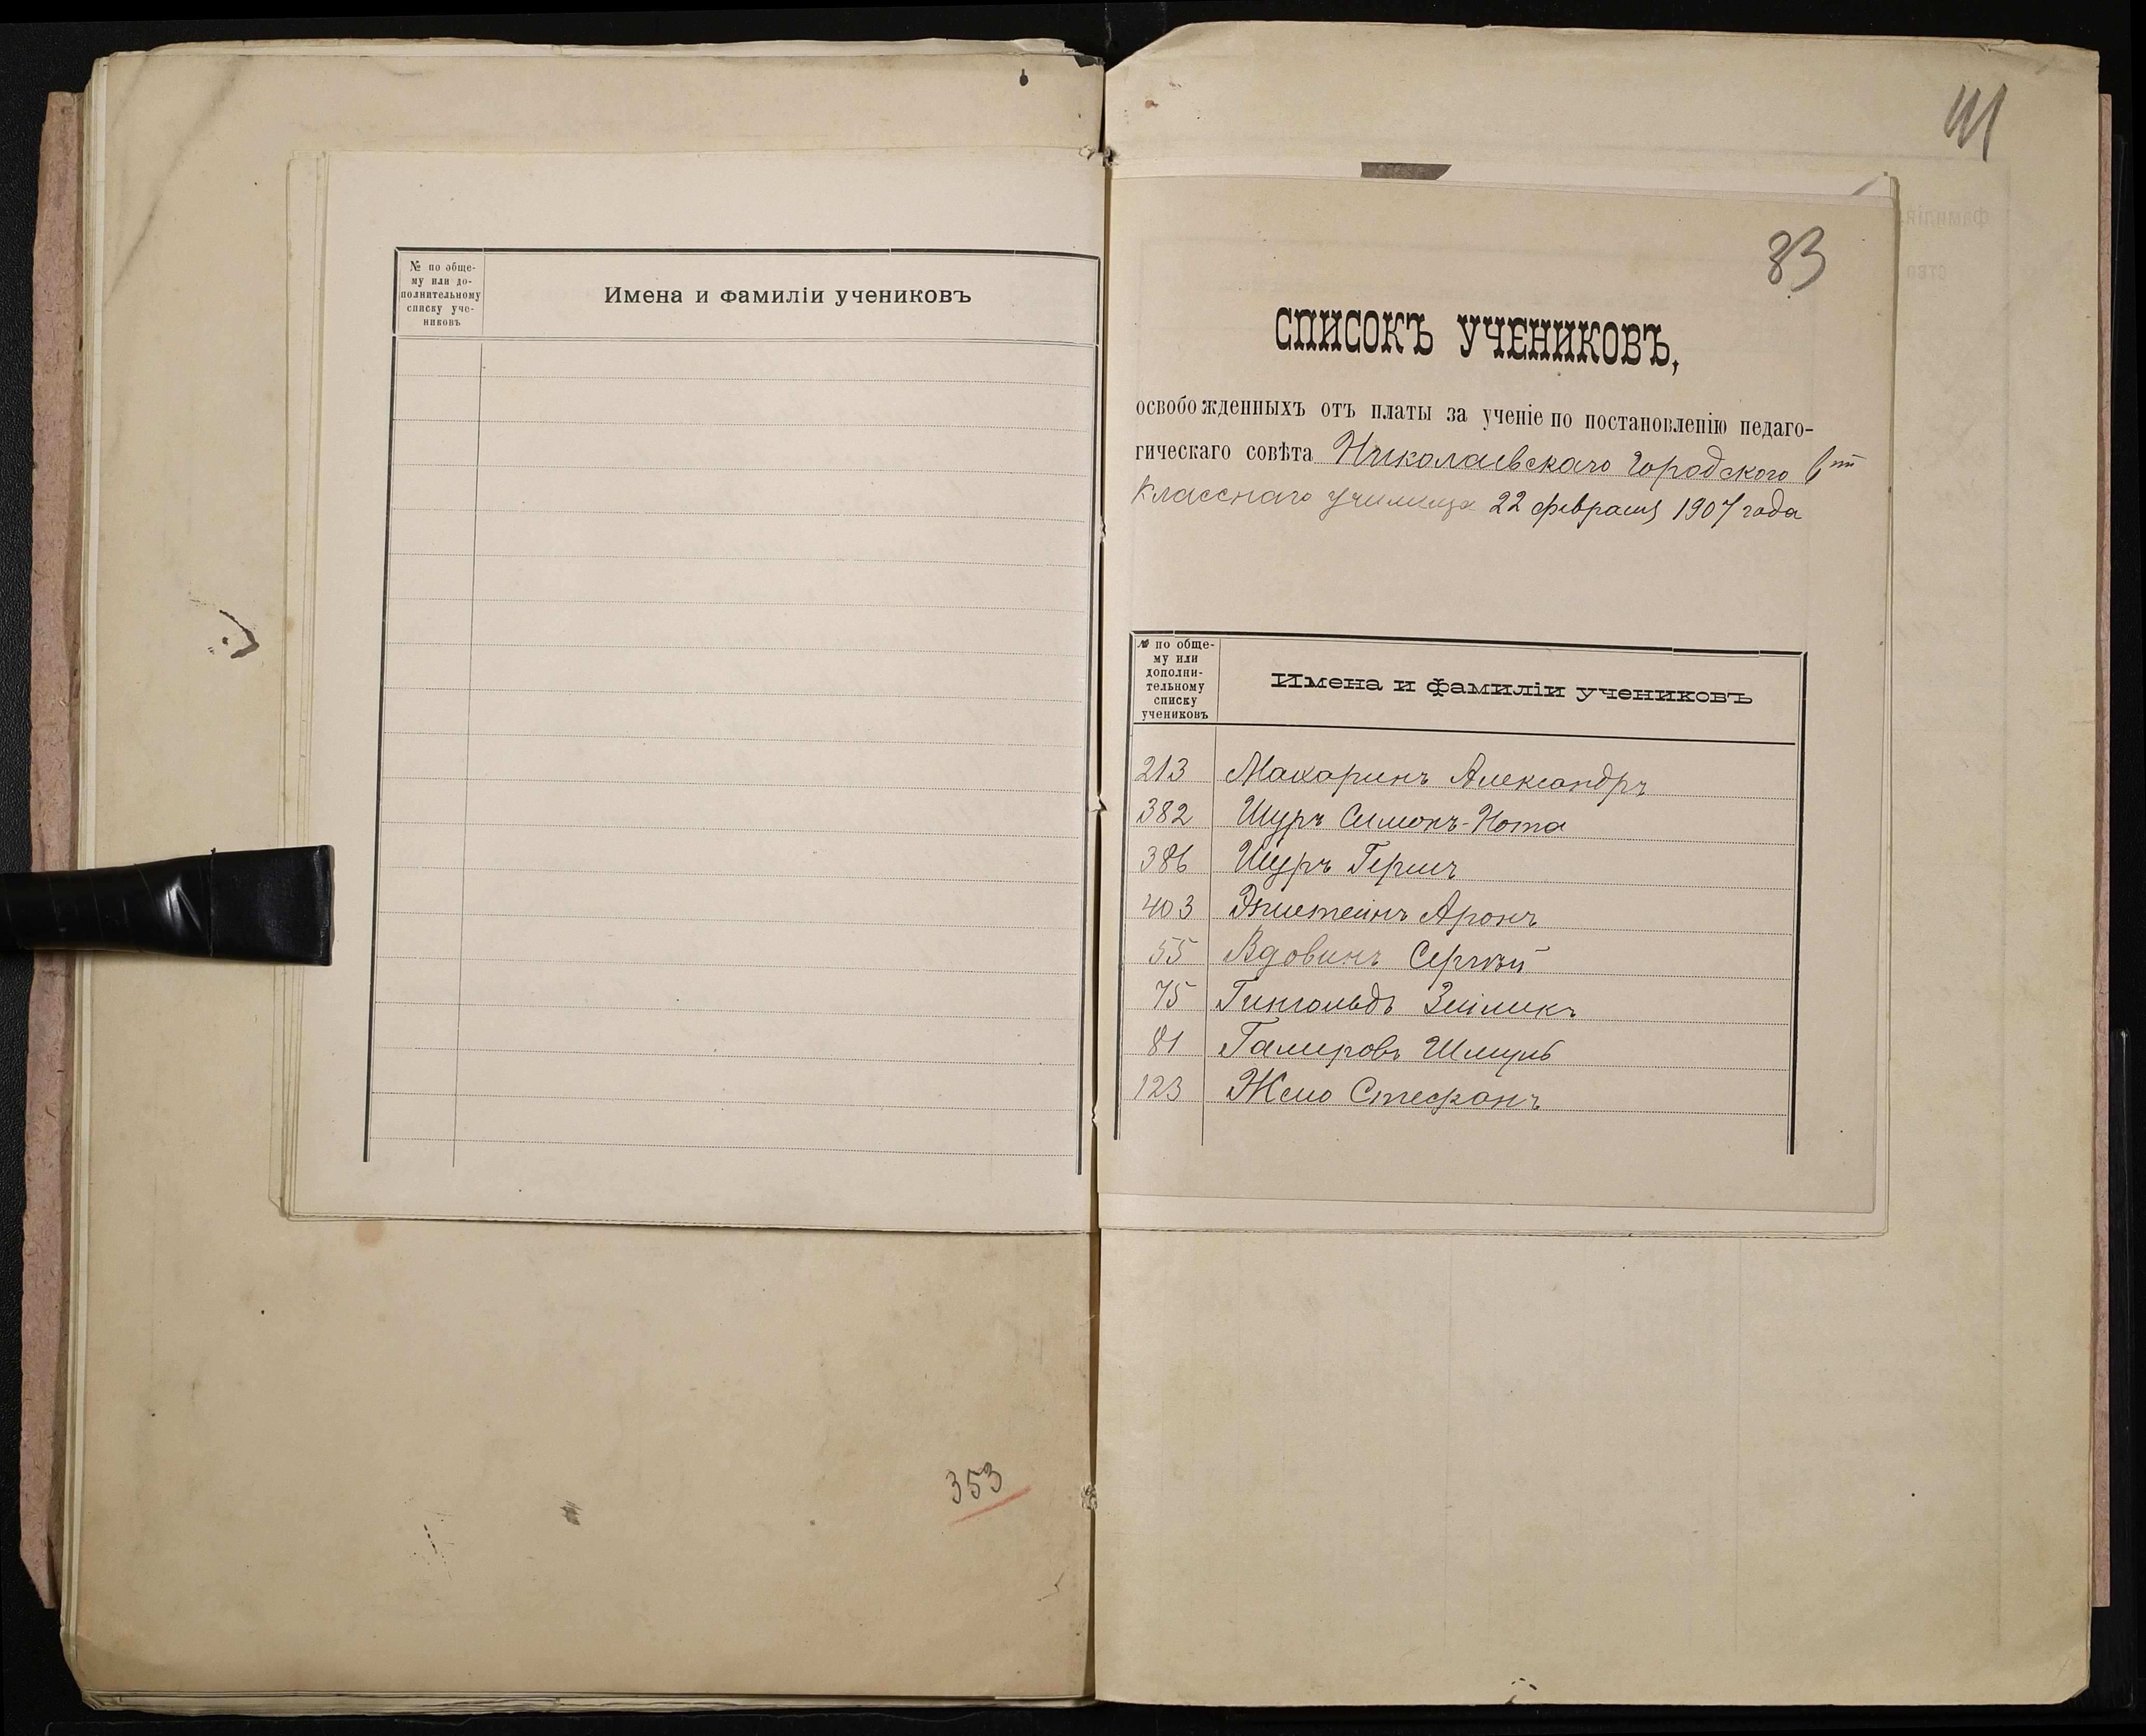 № по обще-
му или до-
полнительному
списку уче-
никовъ
Имена и фамиліи учениковъ
353
83
СПИСОКЪ УЧЕНИКОВЪ,
освобожденныхъ отъ платы за ученіе по постановленію педаго-
гическаго совѣта Николаевскаго Городского 6ти
класснаго училища 22 февраля 1907 года
№ по обще-
му или
дополни-
тельному
списку
учениковъ
Имена и фамиліи учениковъ
213 Макаринъ Александръ
382 Шуръ Симонъ-Нота
386 Шуръ Гершъ
403 Эпштейнъ Аронъ
55 Вдовинъ Сергѣй
75 Гингольдъ Зейликъ
81 Галперовъ Шмуль
123 Стефанъ